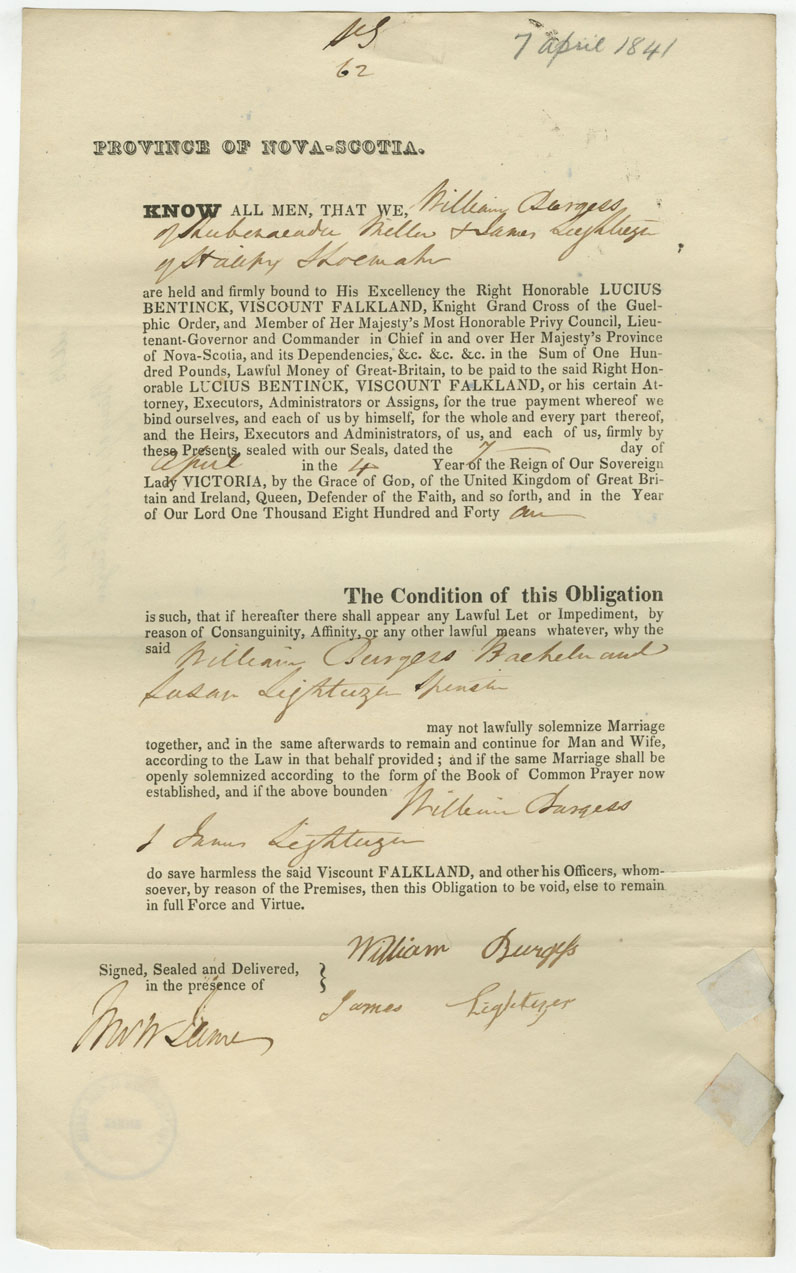 62
7 April 1841
PROVINCE OF NOVA-SCOTIA.
KNOW ALL MEN, THAT WE, William Burgess
of Shubenacadie Miller & James Lightizer
of Halifax Shoemaker
are held and firmly bound to His Excellency the Right Honorable LUCIUS
BENTINCK, VISCOUNT FALKLAND, Knight Grand Cross of the Guel-
phic Order, and Member of Her Majesty's Most Honorable Privy Council, Lieu-
tenant-Governor and Commander in Chief in and over Her Majesty's Province
of Nova-Scotia, and its Dependencies, &c. &c. &c. in the Sum of One Hun-
dred Pounds, Lawful Money of Great-Britain, to be paid to the said Right Hon-
orable LUCIUS BENTINCK, VISCOUNT FALKLAND, or his certain At-
torney, Executors, Administrators or Assigns, for the true payment whereof we
bind ourselves, and each of us by himself, for the whole and every part thereof,
and the Heirs, Executors and Administrators, of us, and each of us, firmly by
these Presents, sealed with our Seals, dated the 7 day of
April in the 4 Year of the Reign of Our Sovereign
Lady VICTORIA, by the Grace of GOD, of the United Kingdom of Great Bri-
tain and Ireland, Queen, Defender of the Faith, and so forth, and in the Year
of Our Lord One Thousand Eight Hundred and Forty one
The Condition of this Obligation
is such, that if hereafter there shall appear any Lawful Let or Impediment, by
reason of Consanguinity, Affinity, or any other lawful means whatever, why the
said William Burgess Bachelor and
Susan Lightizer Spinster
may not lawfully solemnize Marriage
together, and in the same afterwards to remain and continue for Man and Wife,
according to the Law in that behalf provided; and if the same Marriage shall be
openly solemnized according to the form of the Book of Common Prayer now
established, and if the above bounden William Burgess
& James Lightizer
do save harmless the said Viscount FALKLAND, and other his Officers, whom-
soever, by reason of the Premises, then this Obligation to be void, else to remain
in full Force and Virtue.
William Burgess
Signed, Sealed and Delivered,
in the presence of
James Lightizer